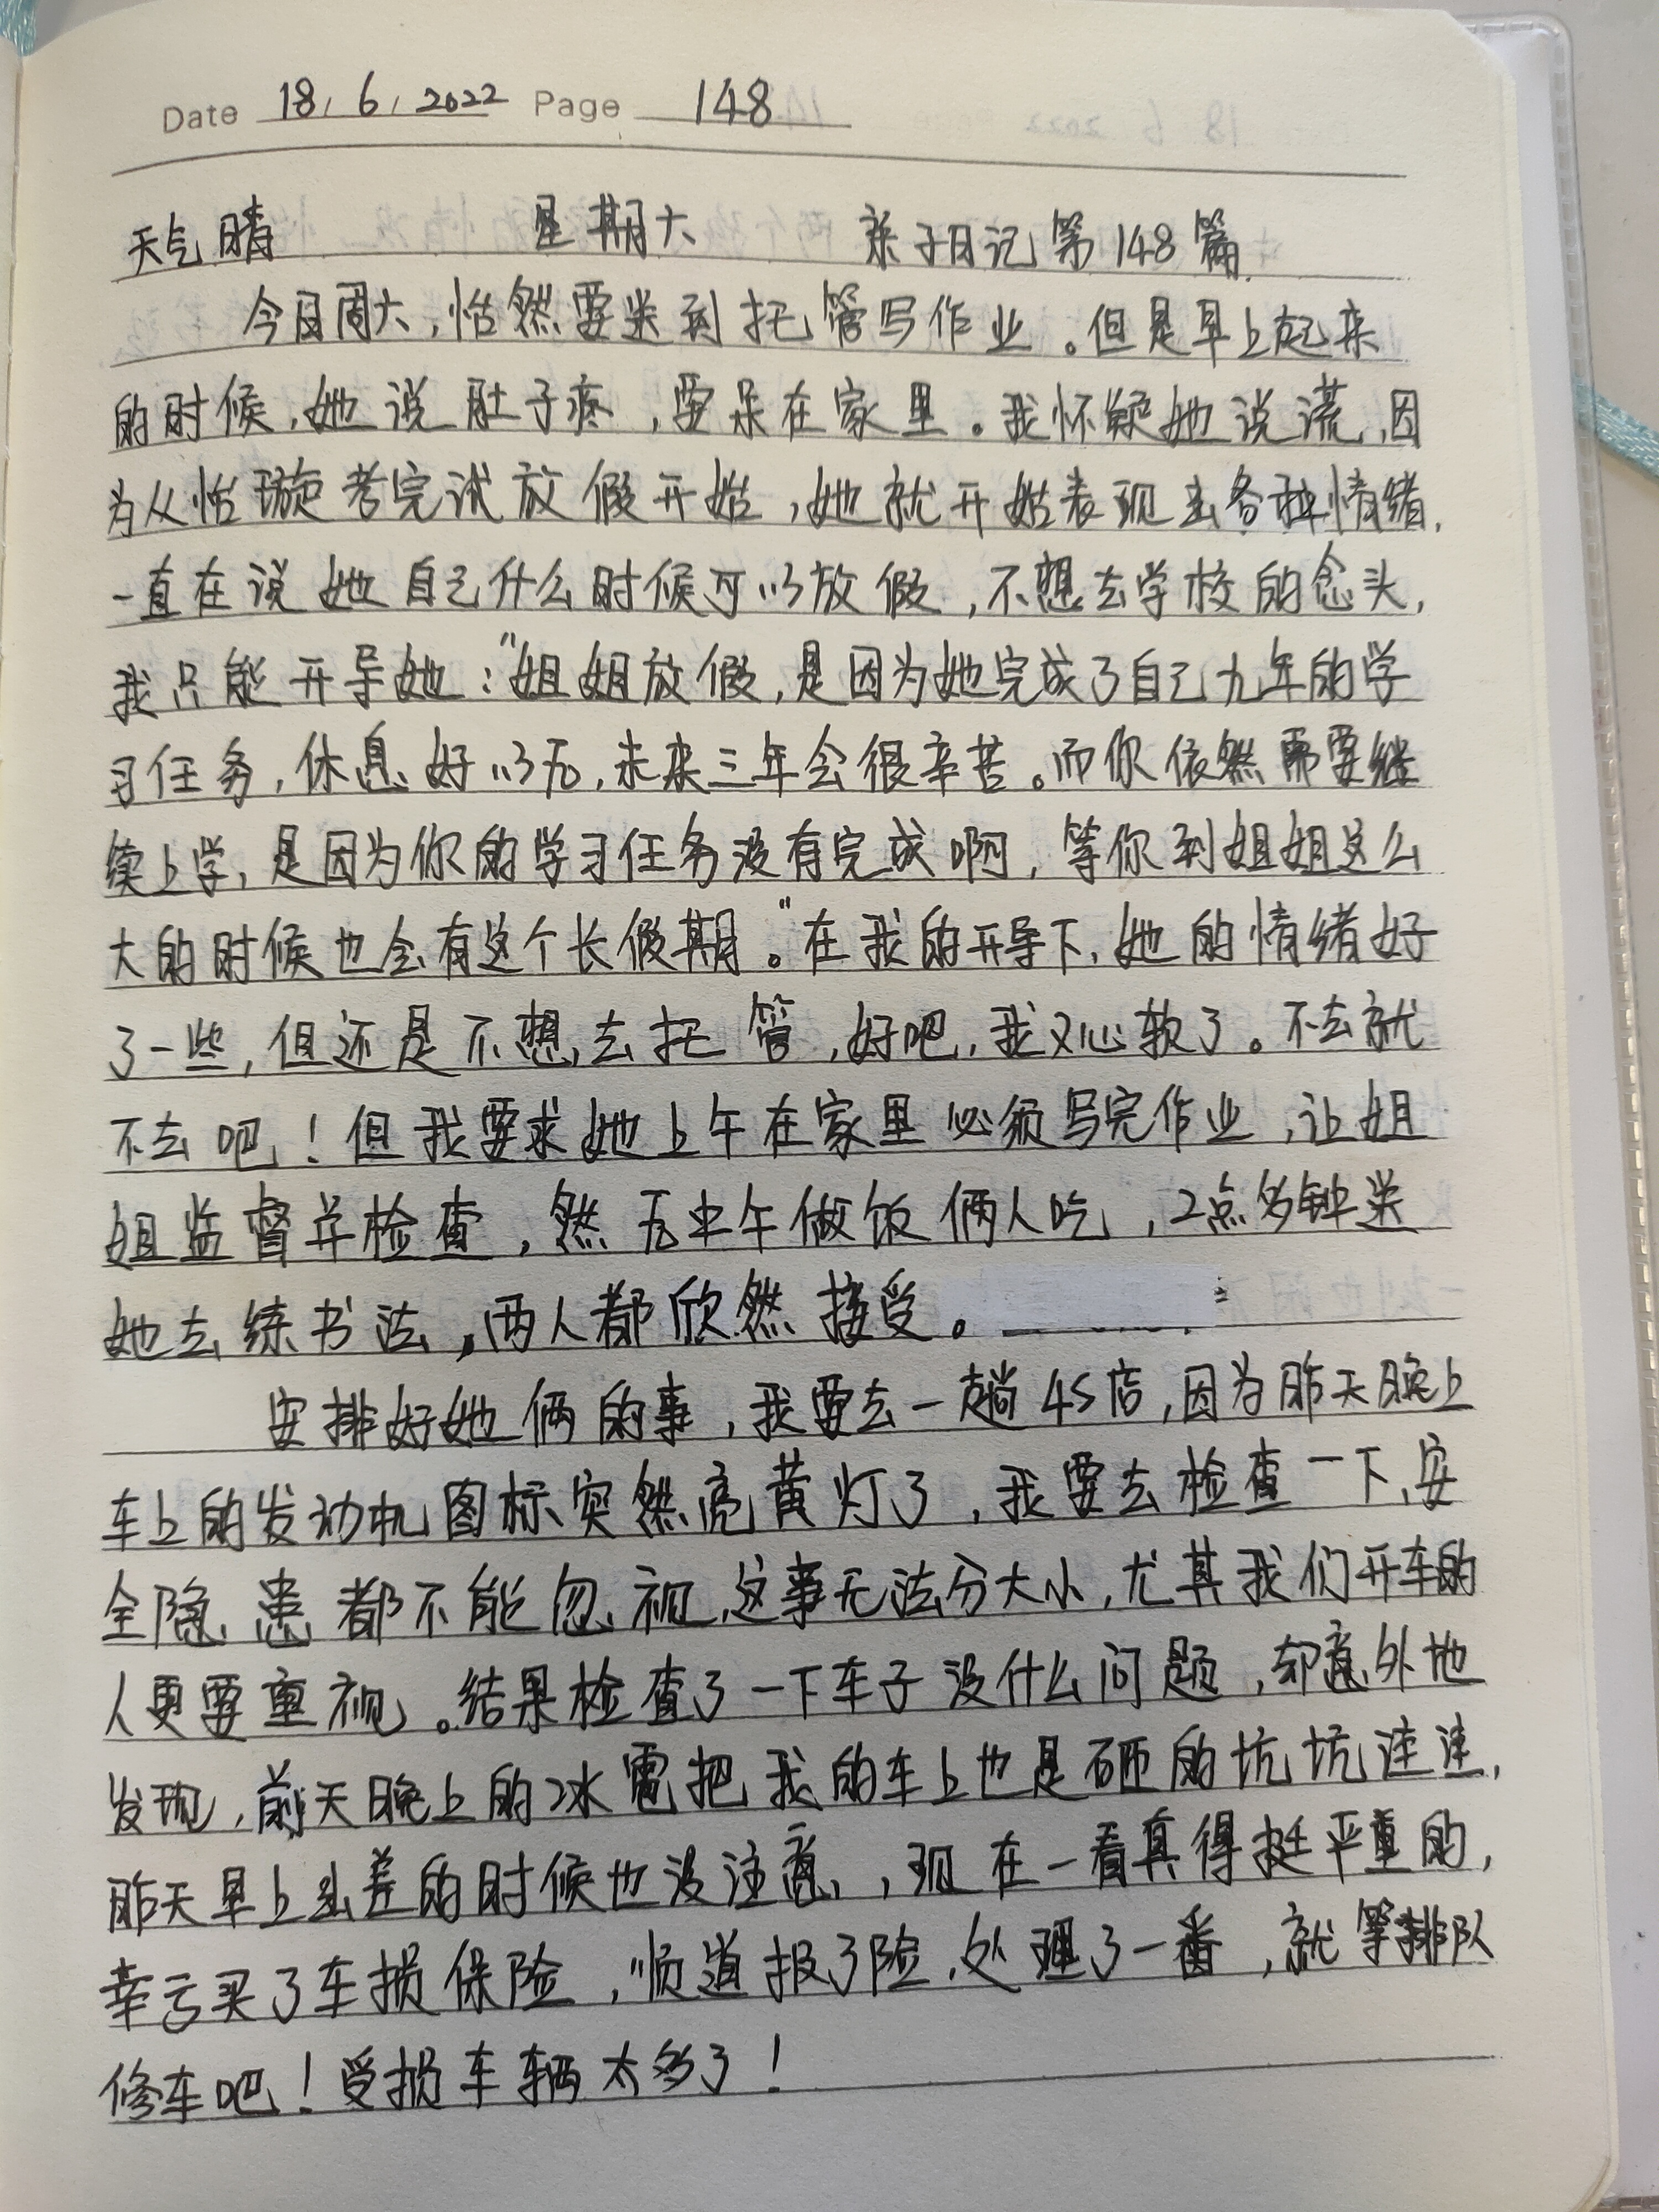 Date 18/6/2022 Page 148
天气晴 星期六 亲子日记第148篇
今日周六，怡然要送到托管写作业。但是早上起来
的时候，她说肚子疼，要呆在家里。我怀疑她说谎，因
为从怡璇考完试放假开始，她就开始表现出各种情绪，
一直在说她自己什么时候可以放假，不想去学校的念头，
我只能开导她："姐姐放假，是因为她完成了自己九年的学
习任务，休息好以后，未来三年会很辛苦。而你依然需要继
续上学，是因为你的学习任务没有完成啊，等你到姐姐这么
大的时候也会有这个长假期。"在我的开导下，她的情绪好
了一些，但还是不想去托管，好吧，我又心软了。不去就
不去吧！但我要求她上午在家里必须写完作业，让姐
姐监督并检查，然后中午做饭俩人吃，2点多钟送
她去练书法，两人都欣然接受。
安排好她俩的事，我要去一趟4S店，因为昨天晚上
车上的发动机图标突然亮黄灯了，我要去检查一下，安
全隐患都不能忽视，这事无法分大小，尤其我们开车的
人更要重视。结果检查了一下车子没什么问题，却意外地
发现，前天晚上的冰雹把我的车上也是砸的坑坑洼洼，
昨天早上出差的时候也没注意，，现在一看真得挺严重的，
幸亏买了车损保险，顺道报了险，处理了一番，就等排队
修车吧！受损车辆太多了！